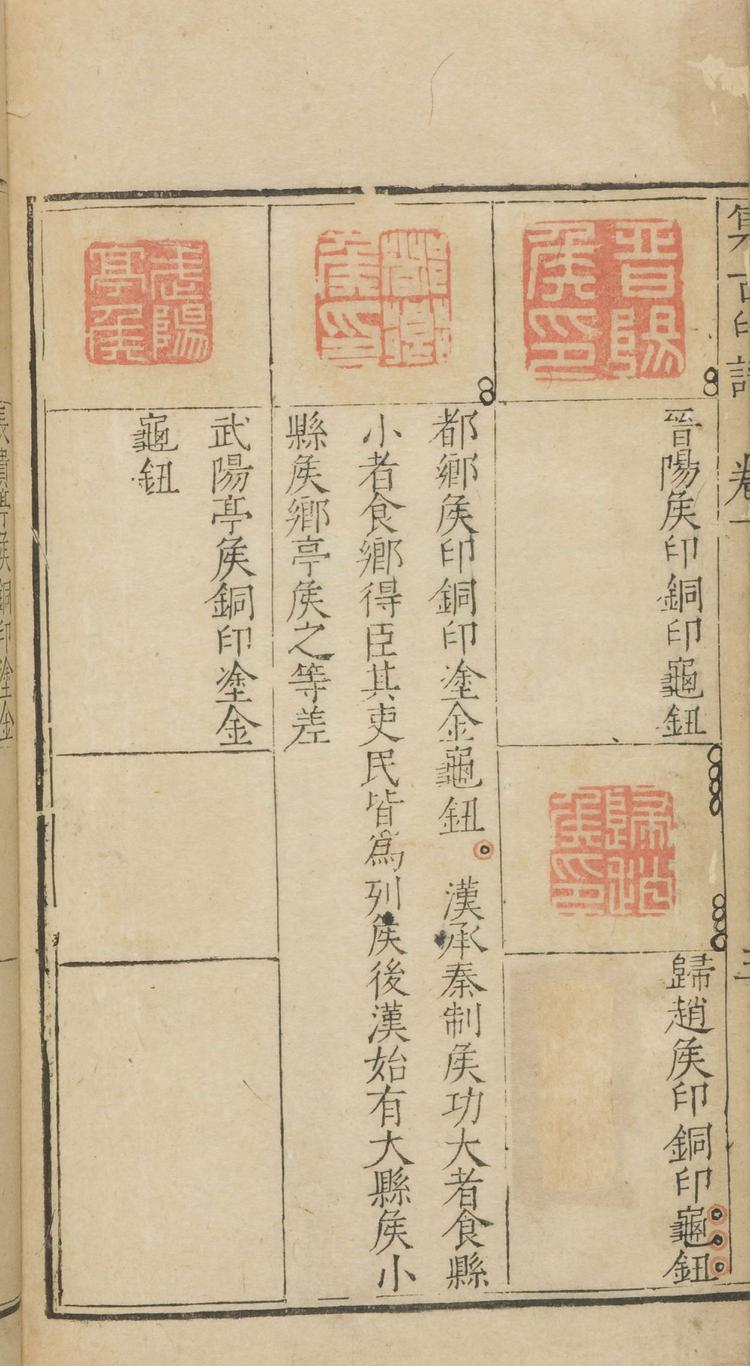 集古印譜 卷一 三
晉陽
矦印
晉陽矦印銅印龜鈕
歸趙
矦印
歸趙矦印銅印龜鈕
都鄉
矦印
都鄉矦印銅印塗金龜鈕 漢承秦制矦功大者食縣
小者食鄉得臣其吏民皆爲列矦後漢始有大縣矦小
縣矦鄉亭矦之等差
武陽
亭矦
武陽亭矦銅印塗金
龜鈕
亭矦銅印塗金